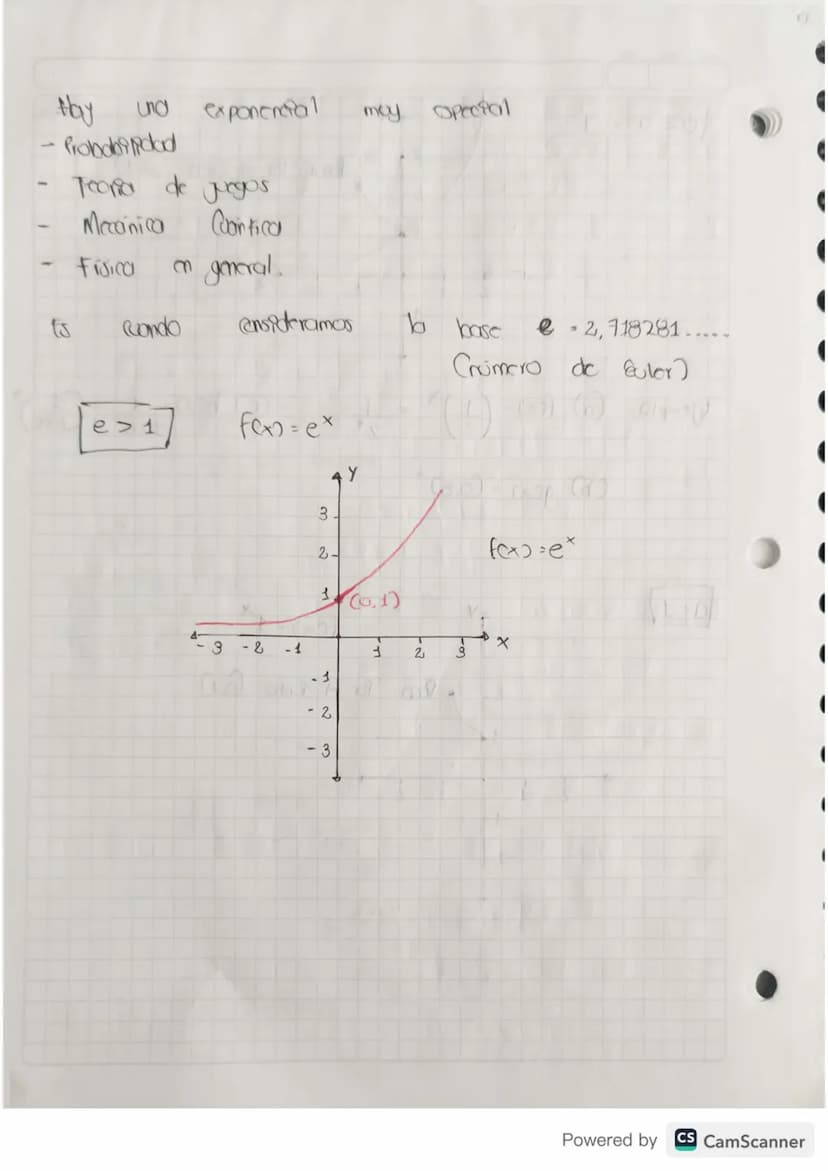 Hay una exponencial muy especial
- Probabilidad
- Teoría de juegos
- Mecánica Cuántica
- Física en general.
Es cuando consideramos la base e = 2,718281.....
(número de Euler)
e > 1 f(x) = e^x
Y
3
2
f(x) = e^x
1 (0,1)
-3 -2 -1 1 2 3 X
-1
-2
-3
Powered by CS CamScanner